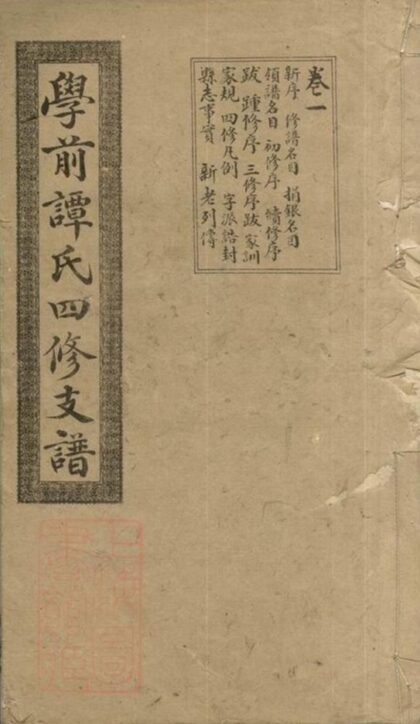 卷一
新序 修譜名目 捐銀名目
領譜名目 初修序 續修序
跋 踵修序 三修序跋 家訓
家規 四修凡例 字派 誥封
縣志事實 新老列傳
學前譚氏四修支譜